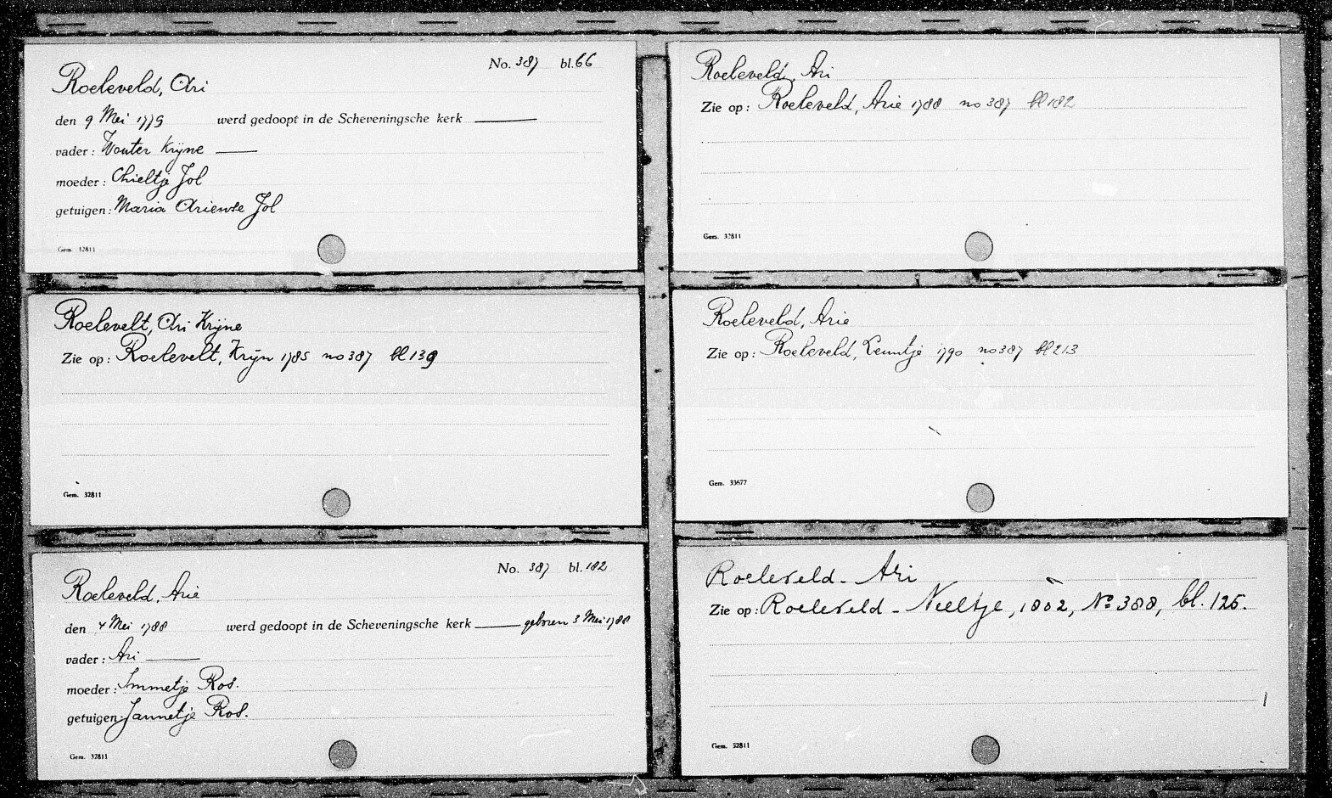 No. 387 bl. 66
Roeleveld, Ari
den 9 Mei 1779 werd gedoopt in de Scheveningsche kerk
vader: Wouter Krijne
moeder: Chieltje Jol
getuigen: Maria Ariense Jol
Gem. 32811
Roelevelt, Ari Krijne
Zie op: Roelevelt, Krijn 1785 no 387 bl 139
Gem. 32811
No. 387 bl. 182
Roeleveld, Arie
den 4 Mei 1788 werd gedoopt in de Scheveningsche kerk geboren 3 Mei 1788
vader: Ari
moeder: Immetje Ros.
getuigen Jannetje Ros.
Gem. 32811
Roeleveld, Ari
Zie op: Roeleveld, Arie 1788 no 387 bl 182
Gem. 32811
Roeleveld, Arie
Zie op: Roeleveld, Leuntje 1790 no 387 bl 213
Gem. 33677
Roeleveld - Ari
Zie op: Roeleveld - Neeltje, 1802, No 388, bl. 125.
Gem. 32811